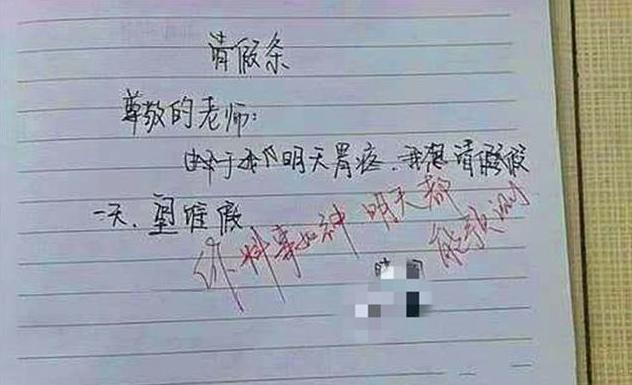 请假条
尊敬的老师:
由于我明天胃疼.我想请假
一天.望准假
你料事如神 明天都
能预测